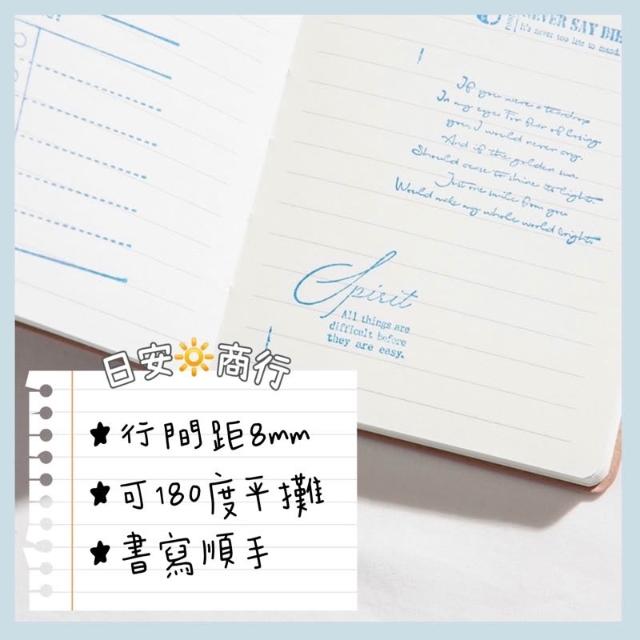 NEVER SAY
It's never too late to mend.
If you were a teardrop
In my eyes For fear of losing
you, I would never cry.
And if the golden sun
Should cease to shine its light
Just one smile from you
Would make my whole world bright
Spirit
All things are
difficult before
they are easy.
日安🔆商行
★行間距8mm
★可180度平攤
★書寫順手